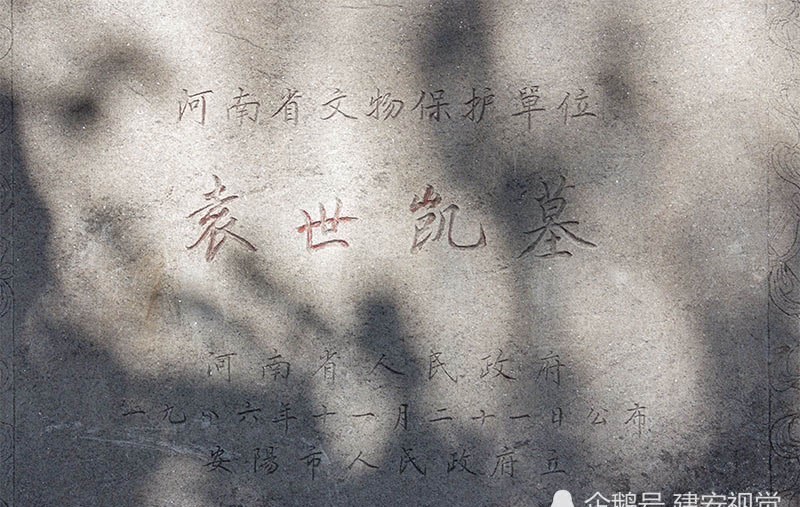 河南省文物保护單位
袁世凯墓
河南省人民政府
一九八六年十一月二十一日公布
安陽市人民政府立
企鹅号 建安视觉